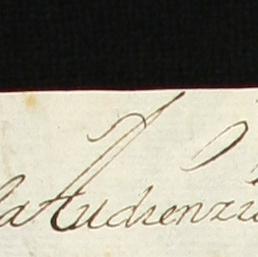 la Audienzia